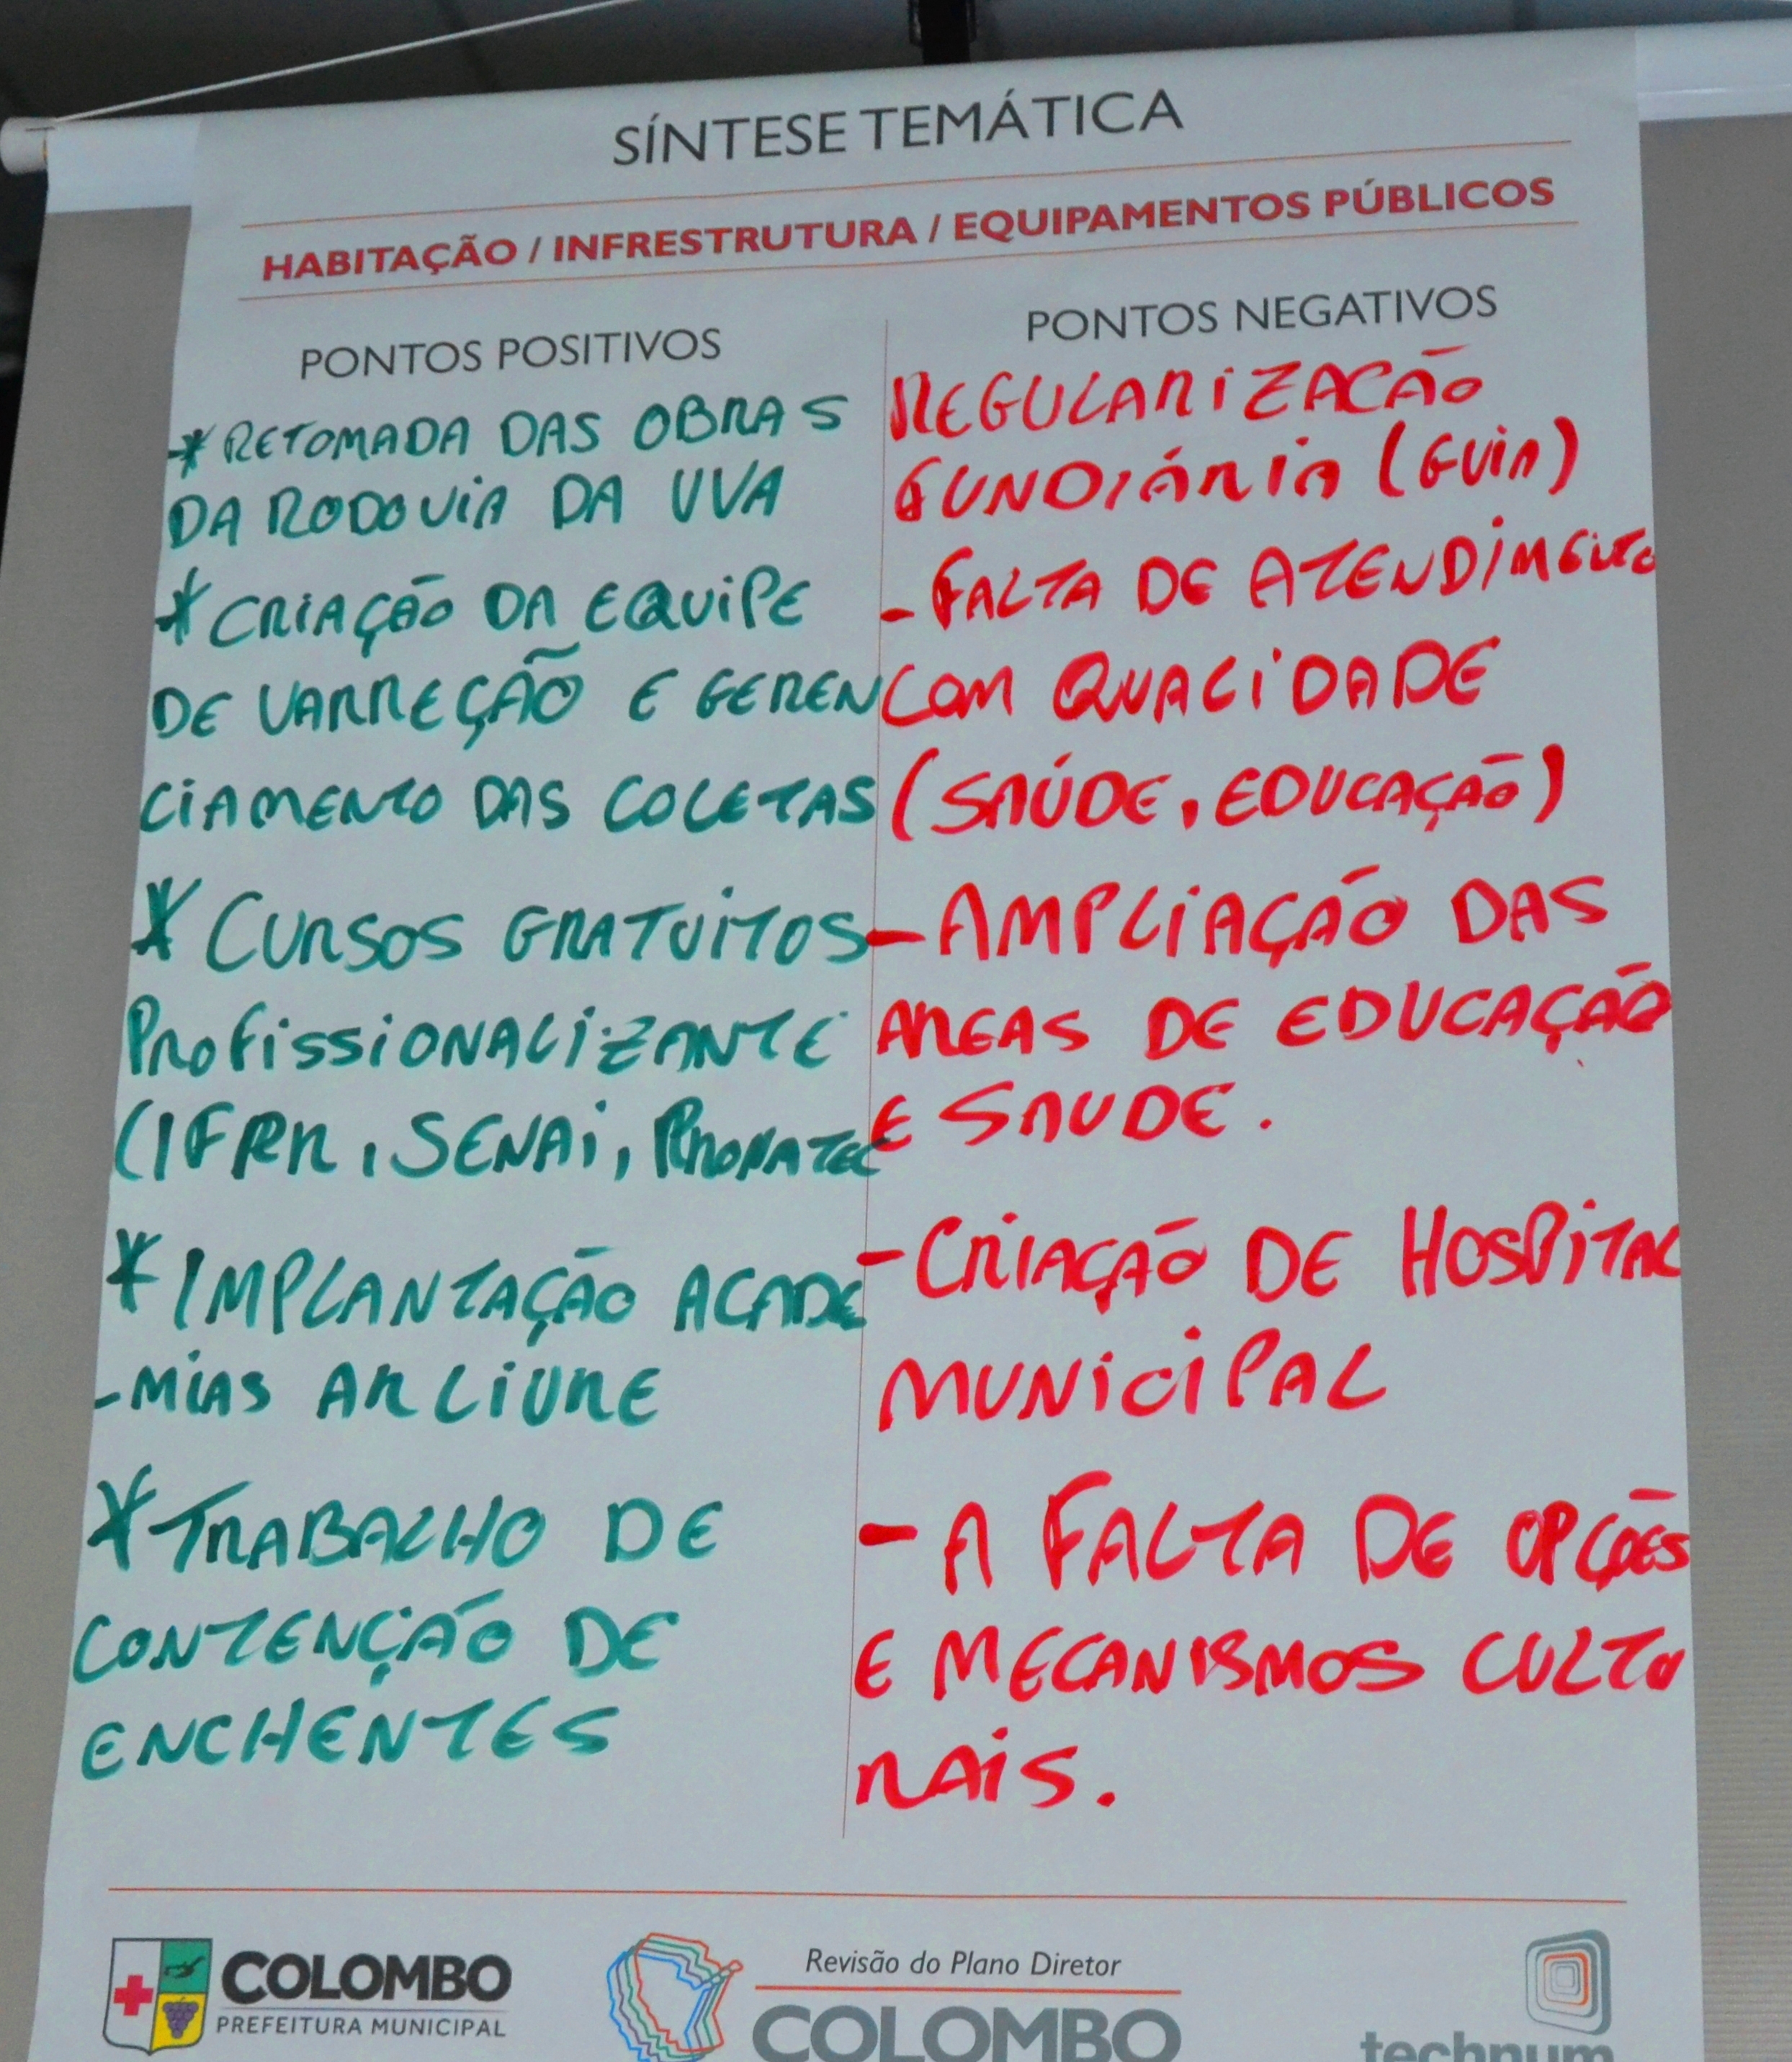 SÍNTESE TEMÁTICA
HABITAÇÃO / INFRESTRUTURA / EQUIPAMENTOS PÚBLICOS
PONTOS POSITIVOS
* RETOMADA DAS OBRAS
DA RODOVIA DA UVA
* CRIAÇÃO DA EQUIPE
DE VARREÇÃO E GEREN
CIAMENTO DAS COLETAS
* CURSOS GRATUITOS
PROFISSIONALIZANTE
(IFPR, SENAI, PRONATEC
* IMPLANTAÇÃO ACADE
-MIAS AR LIVRE
* TRABALHO DE
CONTENÇÃO DE
ENCHENTES
PONTOS NEGATIVOS
REGULARIZACÃO
FUNDIÁRIA (GUIA)
- FALTA DE ATENDIMENTO
COM QUALIDADE
(SAÚDE, EDUCAÇÃO)
- AMPLIAÇÃO DAS
AREAS DE EDUCAÇÃO
E SAUDE.
- CRIAÇÃO DE HOSPITAL
MUNICIPAL
- A FALTA DE OPÇÕES
E MECANISMOS CULTU
RAIS.
COLOMBO
PREFEITURA MUNICIPAL
Revisão do Plano Diretor
COLOMBO
technum